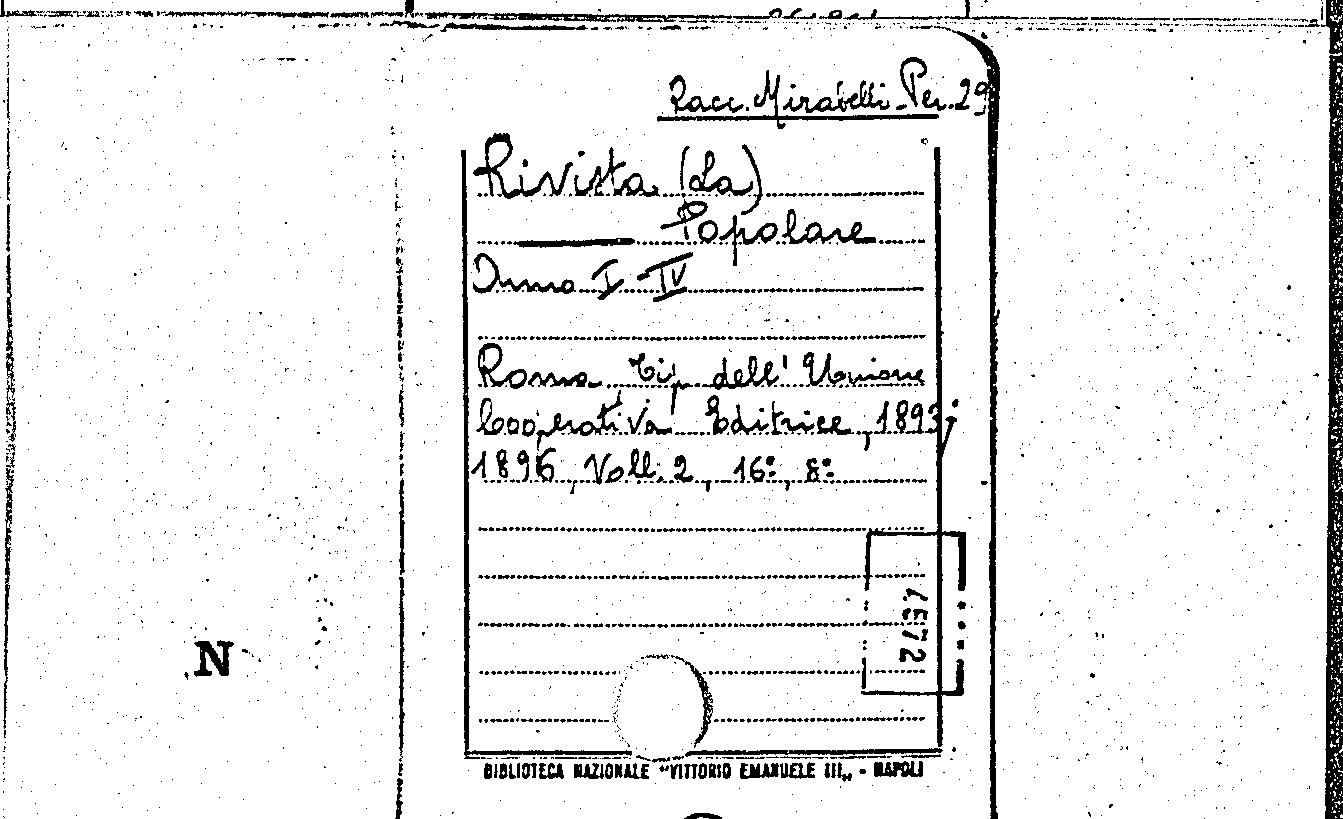 Racc. Mirabelli-Per. 29
Rivista (La)
Popolare
Anno I-IV
Roma Tip dell' Unione
Cooperativa Editrice, 1893;
1896, Voll. 2, 16º, 8º
4572
N
BIBLIOTECA NAZIONALE "VITTORIO EMANUELE III„ - NAPOLI